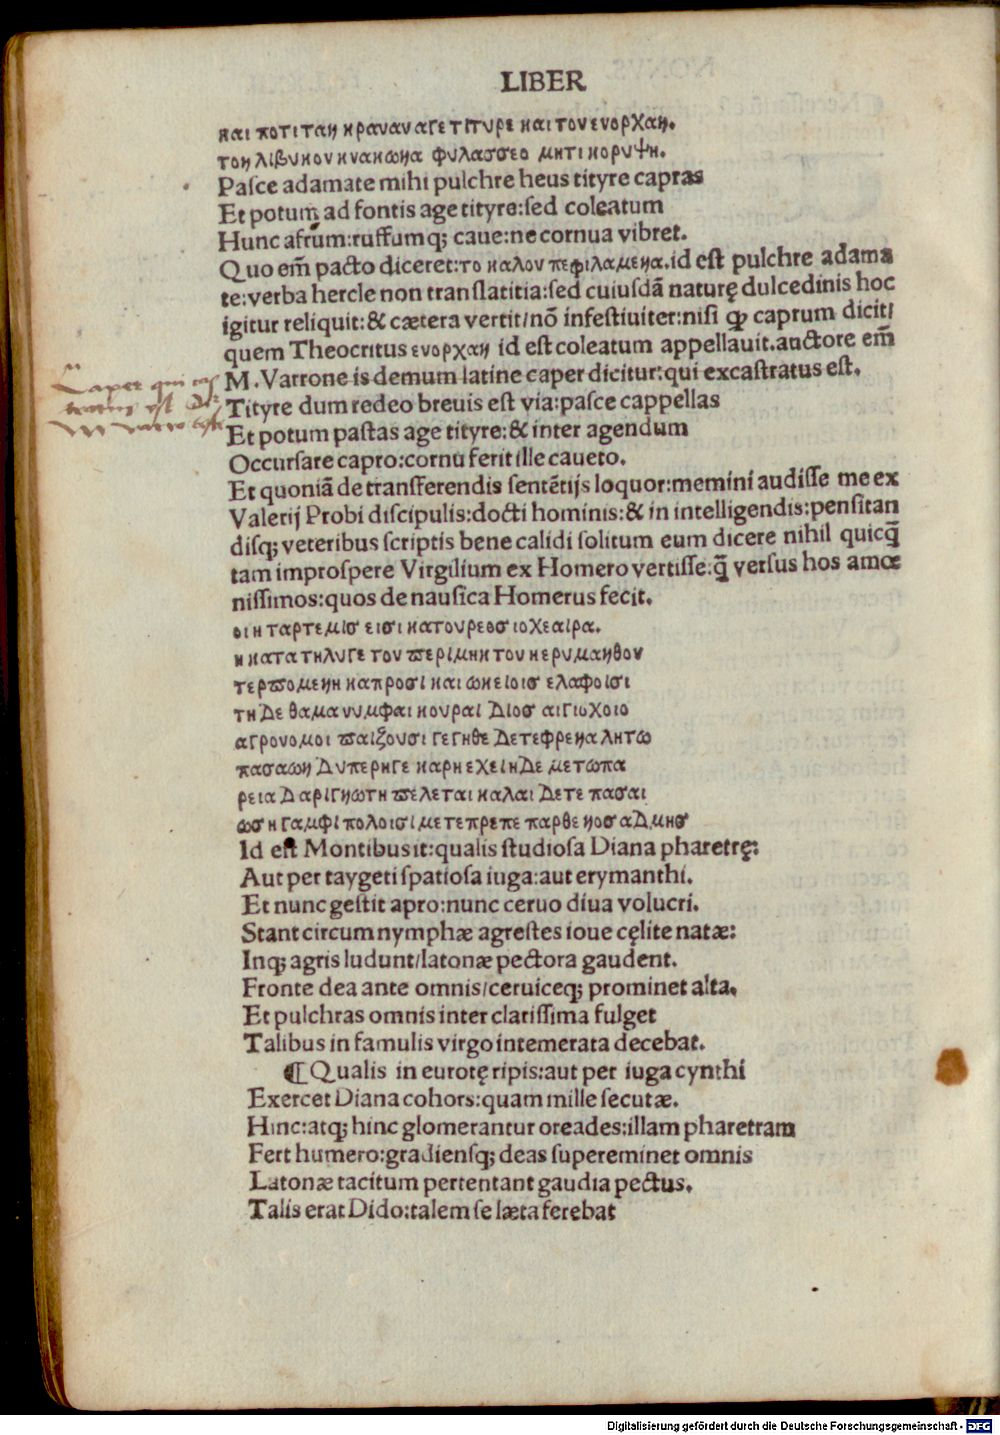 LIBER
και ποτι ταν κραναν αγε τιτυρε και τον ενορχαν.
τον λιβυκον κνακωνα φυλασσεο μητι κορυψη.
Paſce adamate mihi pulchre heus tityre capras
Et potum ad fontis age tityre:ſed coleatum
Hunc afrum:ruffumq; caue:ne cornua vibret.
Quo em̄ pacto diceret:το καλον πεφιλαμενα.id eſt pulchre adama
te:verba hercle non tranſlatitia:ſed cuiuſdā naturę dulcedinis hoc
igitur reliquit:& cætera vertit/nō infeſtiuiter:niſi ꝙ caprum dicit/
quem Theocritus ενορχαν id eſt coleatum appellauit.auctore em̄
M.Varrone is demum latine caper dicitur:qui excaſtratus eſt.
Caper qui cas
tratus est
Tityre dum redeo breuis eſt via:paſce cappellas
Et potum paſtas age tityre:& inter agendum
Occurſare capro:cornu ferit ille caueto.
Et quoniā de tranſferendis ſentētijs loquor:memini audiſſe me ex
Valerij Probi diſcipulis:docti hominis:& in intelligendis:penſitan
diſq; veteribus ſcriptis bene calidi ſolitum eum dicere nihil quicq̄
tam improſpere Virgilium ex Homero vertiſſe:q̄ verſus hos amœ
niſſimos:quos de nauſica Homerus fecit.
οιη ταρτεμισ εισι κατουρεοσ ιοχεαιρα.
η κατα τηλυγε τον ϖεριμηκ τον η ερυμανθον
τερϖομενη καπροσι και ωκειοισ ελαφοισι
τη Δε θαμα νυμφαι κουραι Διοσ αιγιοχοιο
αγρονομοι ϖαιξουσι γεγηθε Δετεφρενα λητω
πασαων Δυπερηγε καρη εχει ηΔε μετωπα
ρεια Δ αριγνωτη ϖελεται καλαι Δετε πασαι
ωσ η γαμφι πολοισι μετεπρεπε παρθενοσ αΔμησ
Id eſt Montibus it:qualis ſtudioſa Diana pharetrę:
Aut per taygeti ſpatioſa iuga:aut erymanthi.
Et nunc geſtit apro:nunc ceruo diua volucri.
Stant circum nymphæ agreſtes ioue cęlite natæ:
Inq; agris ludunt/latonæ pectora gaudent.
Fronte dea ante omnis/ceruiceq; prominet alta.
Et pulchras omnis inter clariſſima fulget
Talibus in famulis virgo intemerata decebat.
¶ Qualis in eurotę ripis:aut per iuga cynthi
Exercet Diana cohors:quam mille ſecutæ.
Hinc:atq; hinc glomerantur oreades:illam pharetram
Fert humero:gradienſq; deas ſupereminet omnis
Latonæ tacitum pertentant gaudia pectus.
Talis erat Dido:talem ſe læta ferebat
Digitalisierung gefördert durch die Deutsche Forschungsgemeinschaft - DFG